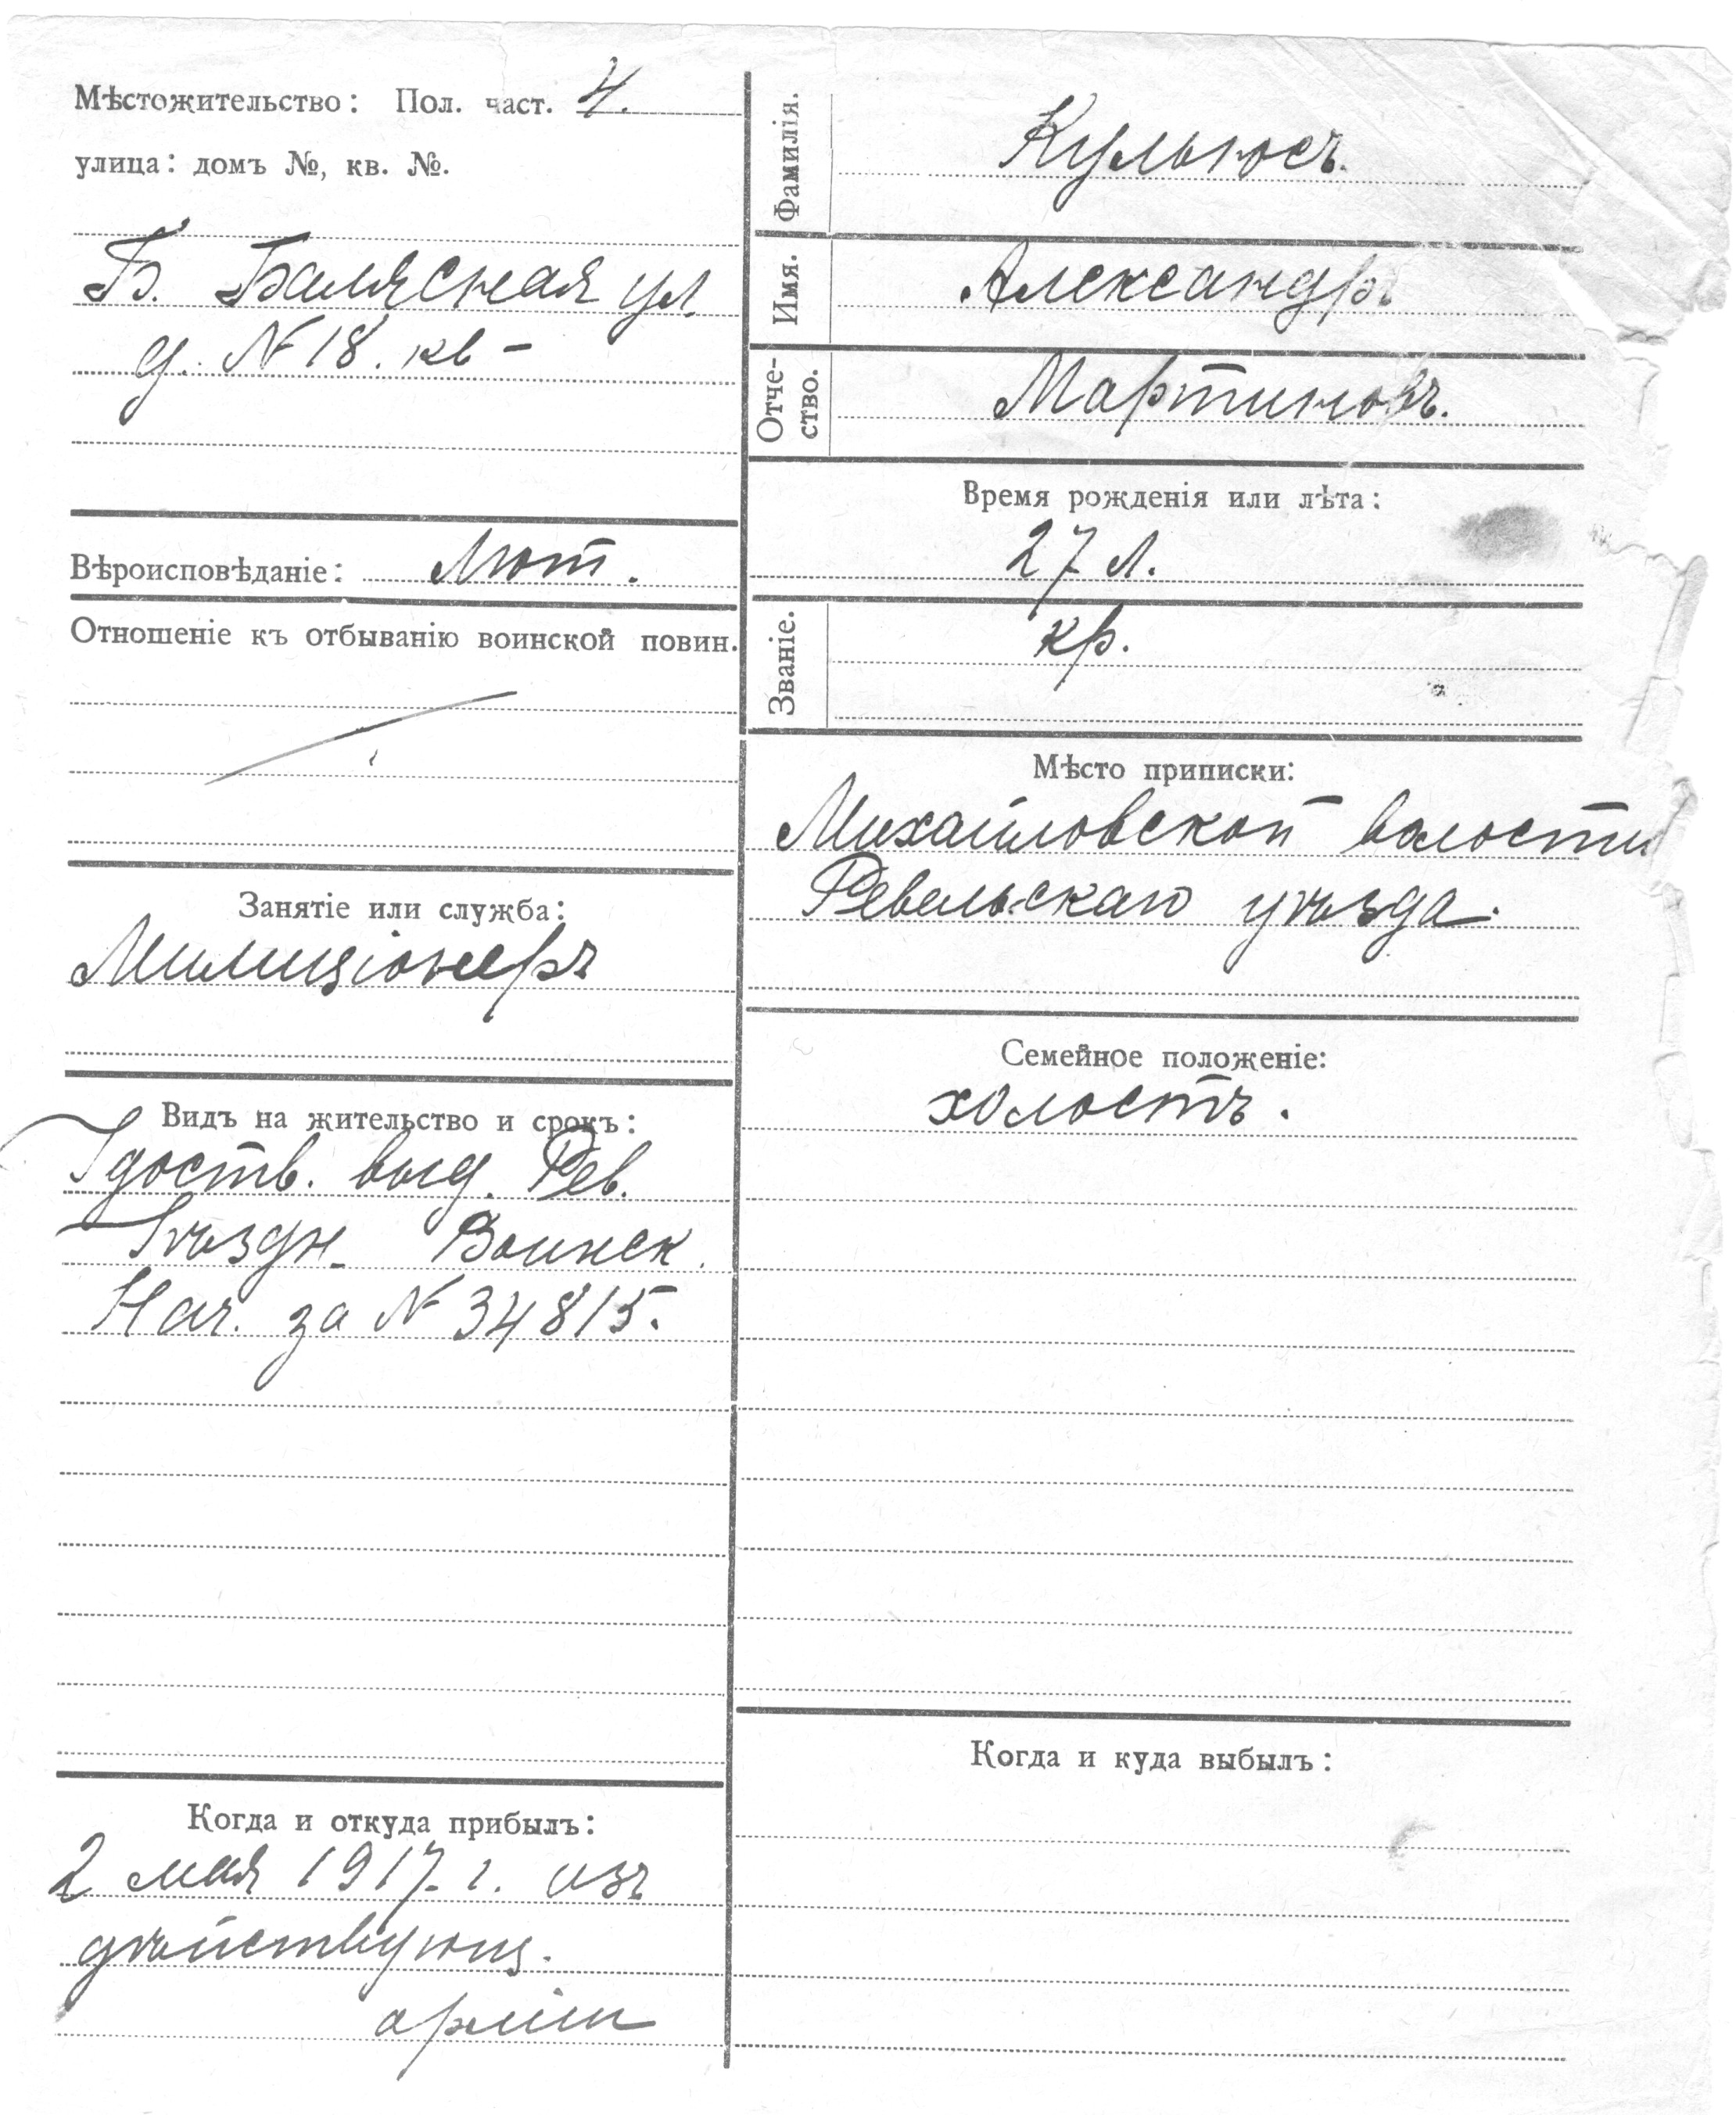 Мѣстожительство: Пол. част. 4.
улица: домъ №, кв. №.
Б. Балясная ул
д. № 18. кв –
Вѣроисповѣданіе: Лют.
Отношеніе къ отбыванію воинской повин.
Занятіе или служба:
Милиціонеръ
Видъ на жительство и срокъ:
Удоств. выд. Рев.
Уѣздн. Воинск.
Нач. за № 34815.
Когда и откуда прибылъ:
2 мая 1917 г. изъ
дѣйствующ.
арміи
Фамилія.
Кульюсъ.
Имя.
Александръ
Отче-
ство.
Мартиновъ.
Время рожденія или лѣта:
27 л.
Званіе.
кр.
Мѣсто приписки:
Михайловской волости
Ревельскаго уѣзда.
Семейное положеніе:
холостъ.
Когда и куда выбылъ: